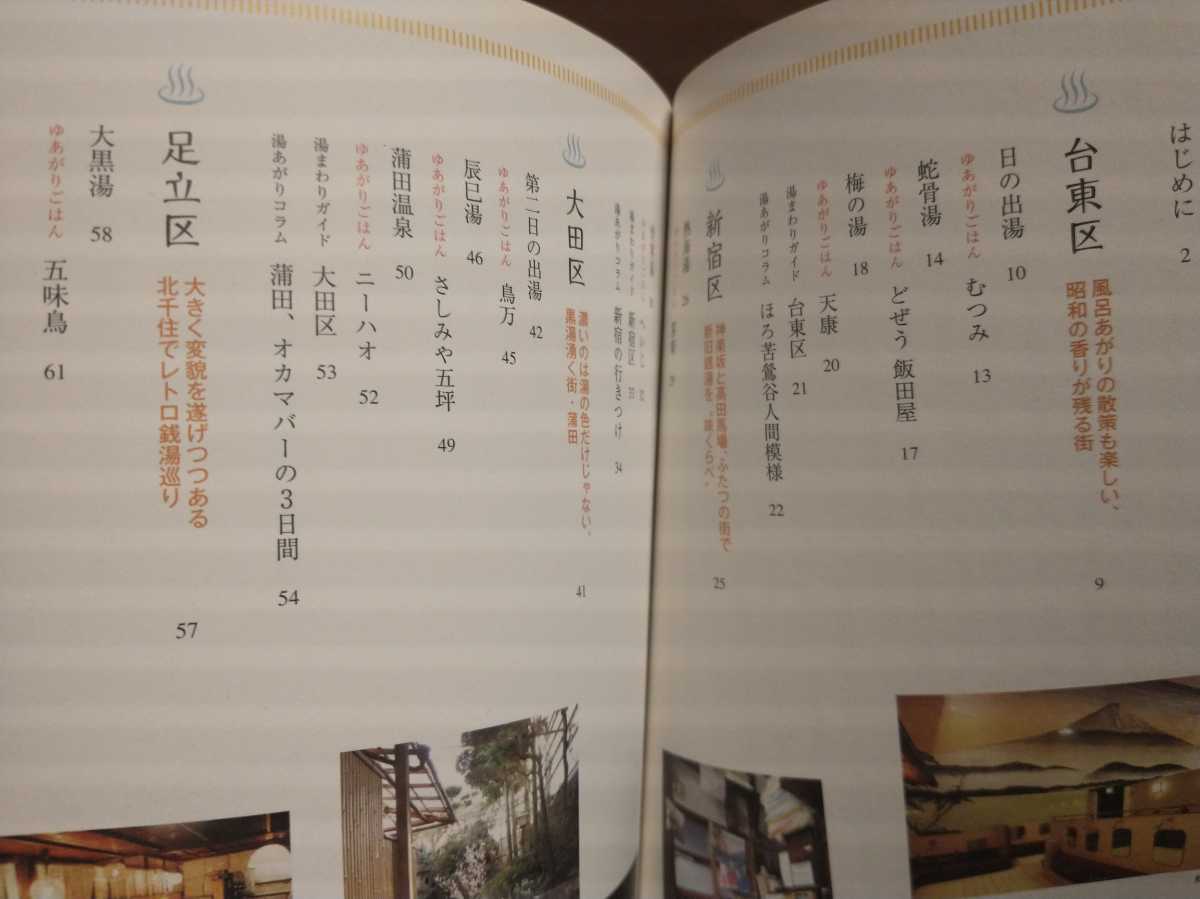 はじめに 2
台東区 風呂あがりの散策も楽しい、
昭和の香りが残る街 9
日の出湯 10
ゆあがりごはん むつみ 13
蛇骨湯 14
ゆあがりごはん どぜう 飯田屋 17
梅の湯 18
ゆあがりごはん 天康 20
湯まわりガイド 台東区 21
湯あがりコラム ほろ苦鶯谷人間模様 22
新宿区 神楽坂と高田馬場、ふたつの街で
新旧銭湯を“味くらべ” 25
熱海湯 26
湯まわりガイド 新宿区
湯あがりコラム 新宿の行きつけ 34
大田区 濃いのは湯の色だけじゃない、
黒湯湧く街・蒲田 41
第二日の出湯 42
ゆあがりごはん 鳥万 45
辰巳湯 46
ゆあがりごはん さしみや五坪 49
蒲田温泉 50
ゆあがりごはん ニーハオ 52
湯まわりガイド 大田区 53
湯あがりコラム 蒲田、オカマバーの3日間 54
足立区 大きく変貌を遂げつつある
北千住でレトロ銭湯巡り 57
大黒湯 58
ゆあがりごはん 五味鳥 61